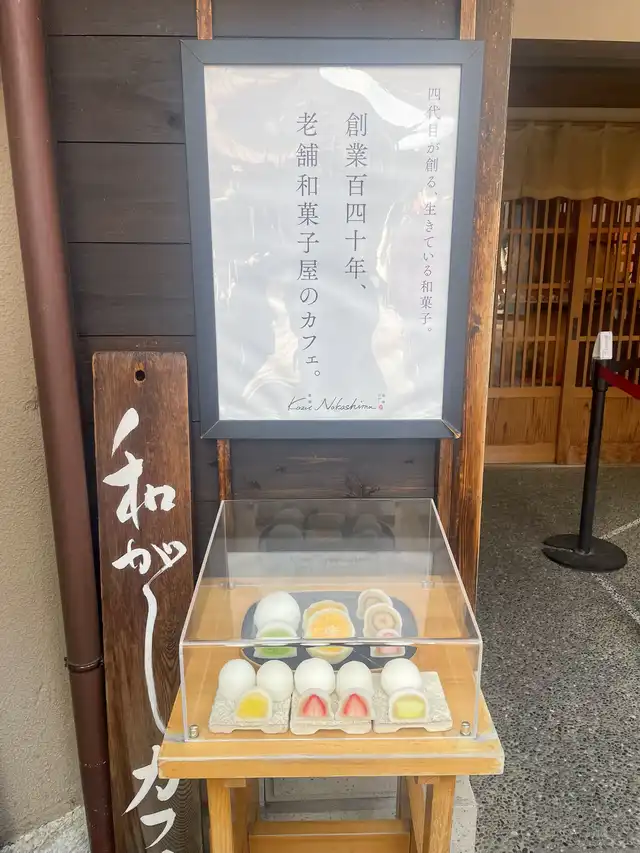 四代目が創る、生きている和菓子。
創業百四十年、
老舗和菓子屋のカフェ。
Nakashima
和がし
カフ